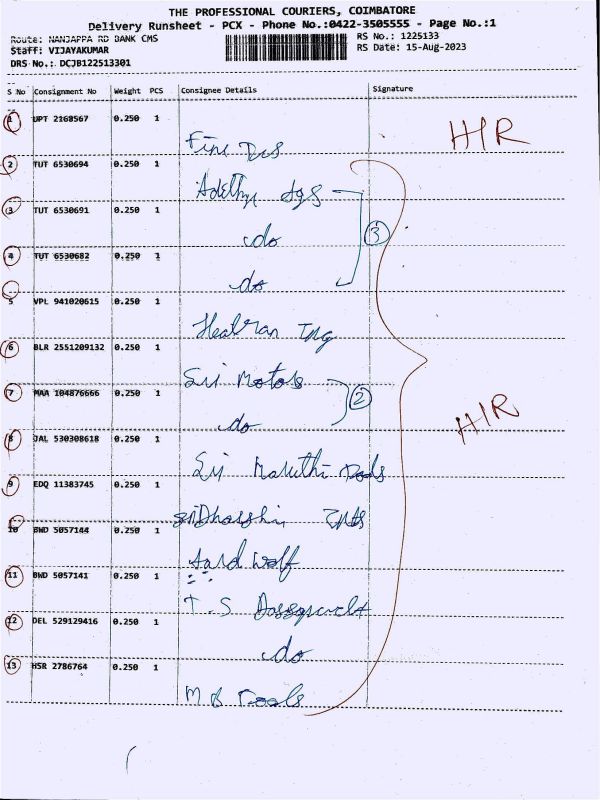 THE PROFESSIONAL COURIERS, COIMBATORE
Delivery Runsheet - PCX - Phone No.:0422-3505555 - Page No.:1
Route: NANJAPPA RD BANK CMS
RS No.: 1225133
Staff: VIJAYAKUMAR
RS Date: 15-Aug-2023
DRS No.: DCJB122513301
S No Consignment No Weight PCS Consignee Details Signature
1 UPT 2168567 0.250 1
HIR
Fine
2 TUT 6530694 0.250 1
3 TUT 6530691 0.250 1
do
3
4 TUT 6530682 0.250 1
do
5 VPL 941020615 0.250 1
6 BLR 2551209132 0.250 1
Sri Motors
7 MAA 104876666 0.250 1
2
do
HIR
8 JAL 530308618 0.250 1
Sri Maruthi
9 EDQ 11383745 0.250 1
10 BWD 5057144 0.250 1
Aard Wolf
11 BWD 5057141 0.250 1
T.S
12 DEL 529129416 0.250 1
do
13 HSR 2786764 0.250 1
M B Tools